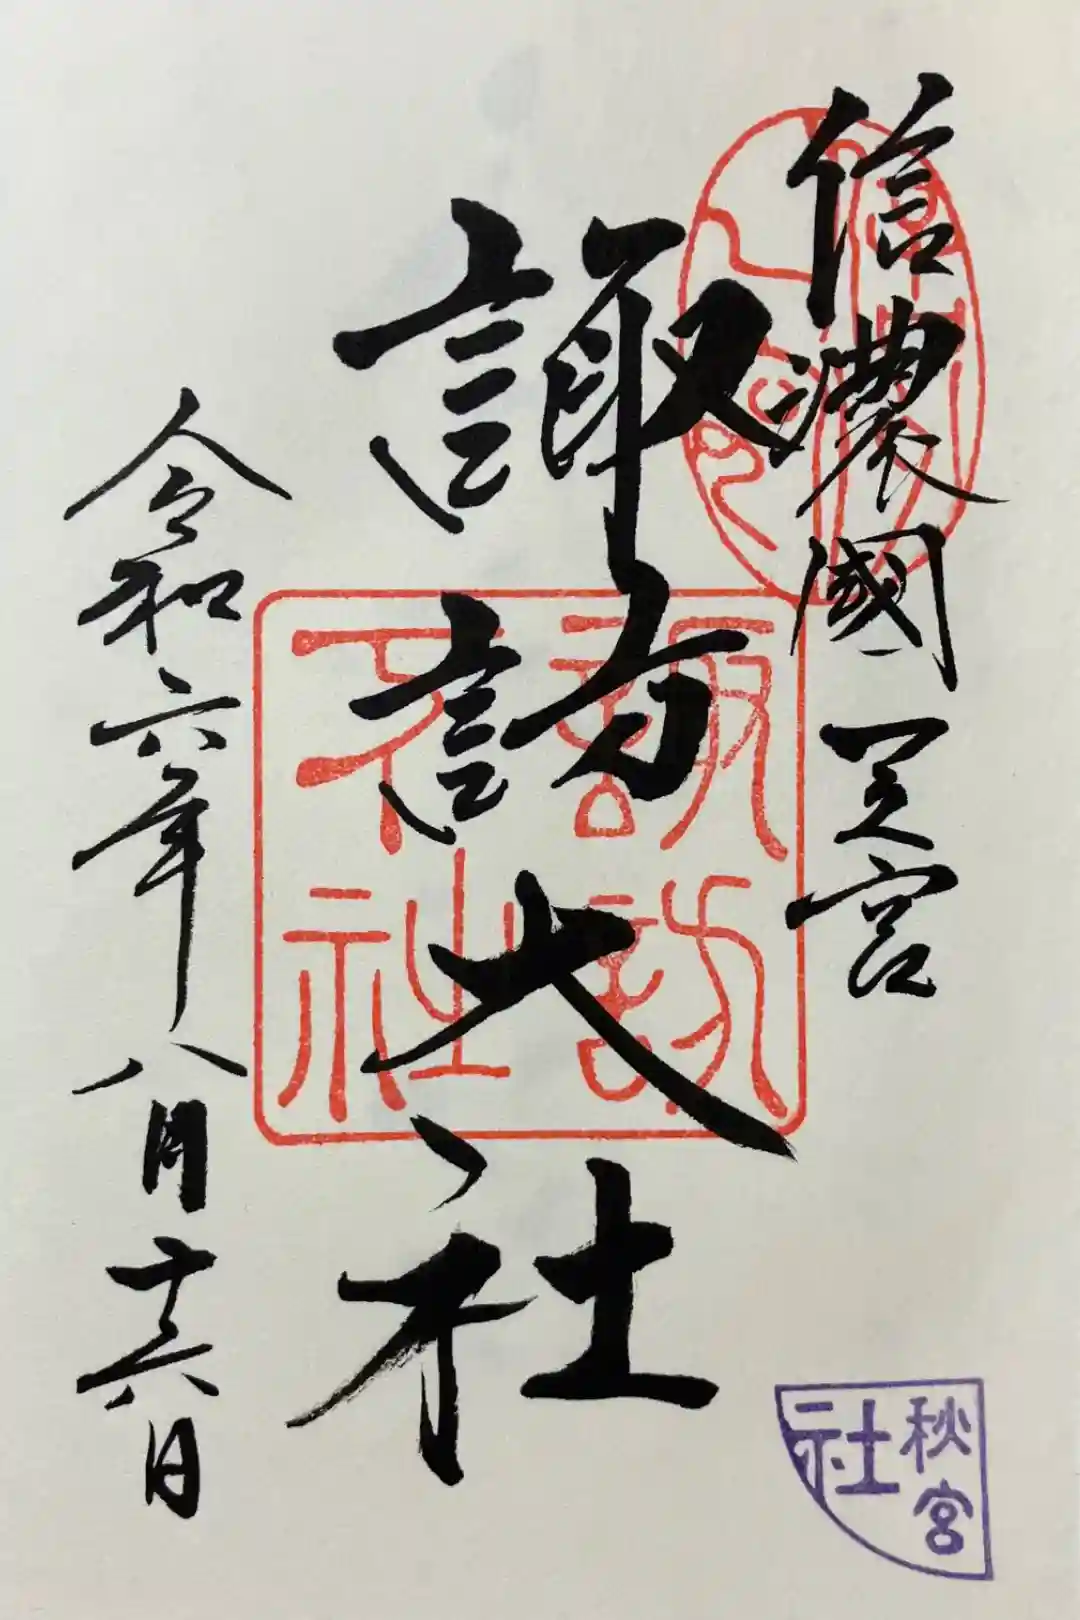 信濃國一之宮
諏訪大社
令和六年八月十六日
諏訪
大社
秋宮
社